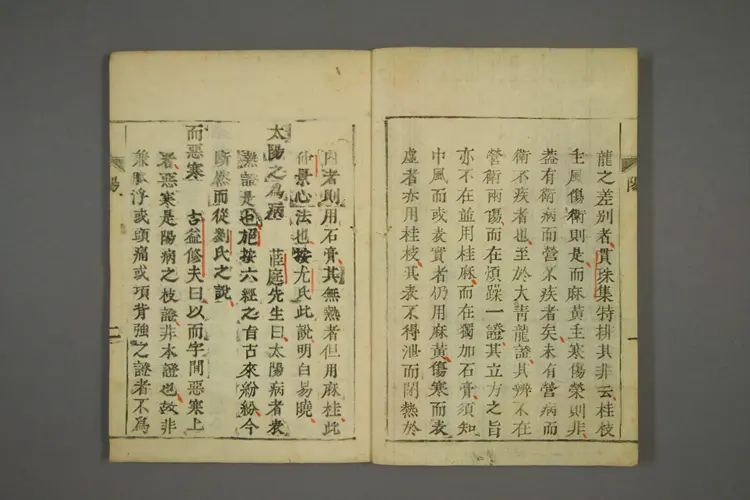 龍之差別者、貫珠集特排其非云桂枝
主風傷衛則是而麻黃主寒傷榮則非、
葢有衛病而營不疾者矣未有營病而
衛不疾者也、至於大青龍證、其辨不在
營衛兩傷而在煩躁一證其立方之旨
亦不在並用桂麻、而在獨加石膏、須知
中風而或表實者仍用麻黃、傷寒而表
虛者亦用桂枝、其表不得泄而閉熱於
內者則用石膏、其無熱者但用麻桂、此
仲景心法也、按尤氏此說、明白易曉、
太陽之為病 茝庭先生曰、太陽病者表
熱證是也、柂按六經之旨古來紛紛、今
斷然而從劉氏之說、
而惡寒 古益修夫曰、以而字間惡寒上
者、惡寒是陽病之枝證、非本證也、故非
兼脈浮或頭痛或項背強之證者不為
陽
一
陽
二